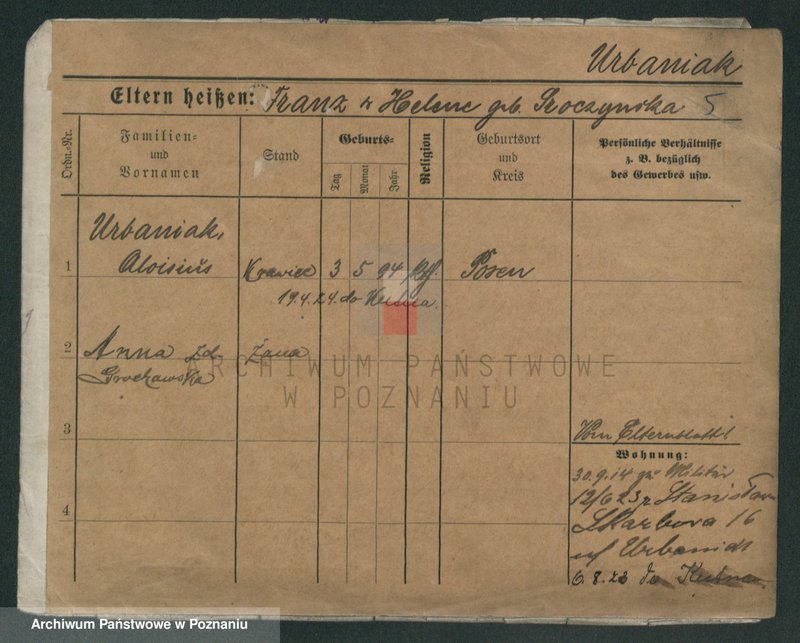 Urbaniak
Eltern heißen: Franz u Helene geb. Proczynska 5
Ordn.-Nr.
Familien-
und
Vornamen
Stand
Geburts-
Tag
Monat
Jahr
Religion
Geburtsort
und
Kreis
Persönliche Verhältnisse
z. B. bezüglich
des Gewerbes usw.
Urbaniak,
1 Aloisius Krawiec 3 5 94 Posen
19.4.24. do
2 Anna zd. żona
Grochawska
ARCHIWUM PAŃSTWOWE
W POZNANIU
3
Vom Elternblatt!
Wohnung:
30.9.14 zu Militär
12/6 23 z Stanisław
Skarbowa 16
Urbaniak
4
6.8.23 do Kutna
Archiwum Państwowe w Poznaniu